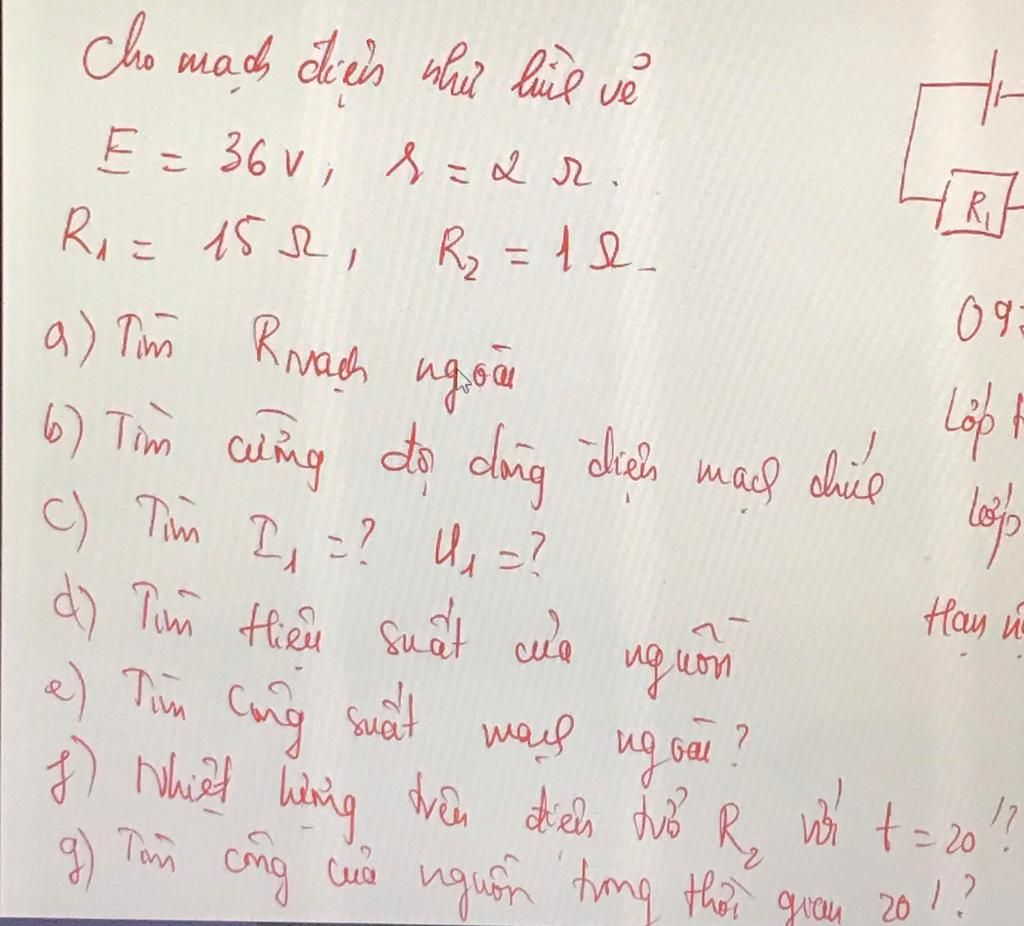 Cho mạch điện như hình vẽ
E = 36 V, r = 2 Ω.
R₁ = 15 Ω, R₂ = 1 Ω
R₁
a) Tìm R mạch ngoài
09
b) Tìm cường độ dòng điện mạch chính
Lớp
c) Tìm I₁ = ? U₁ = ?
lớp
d) Tìm Hiệu suất của nguồn
Hạn
e) Tìm Công suất mạch ngoài?
f) Nhiệt lượng trên điện trở R₂ với t = 20'?
g) Tìm công của nguồn trong thời quan 20'?